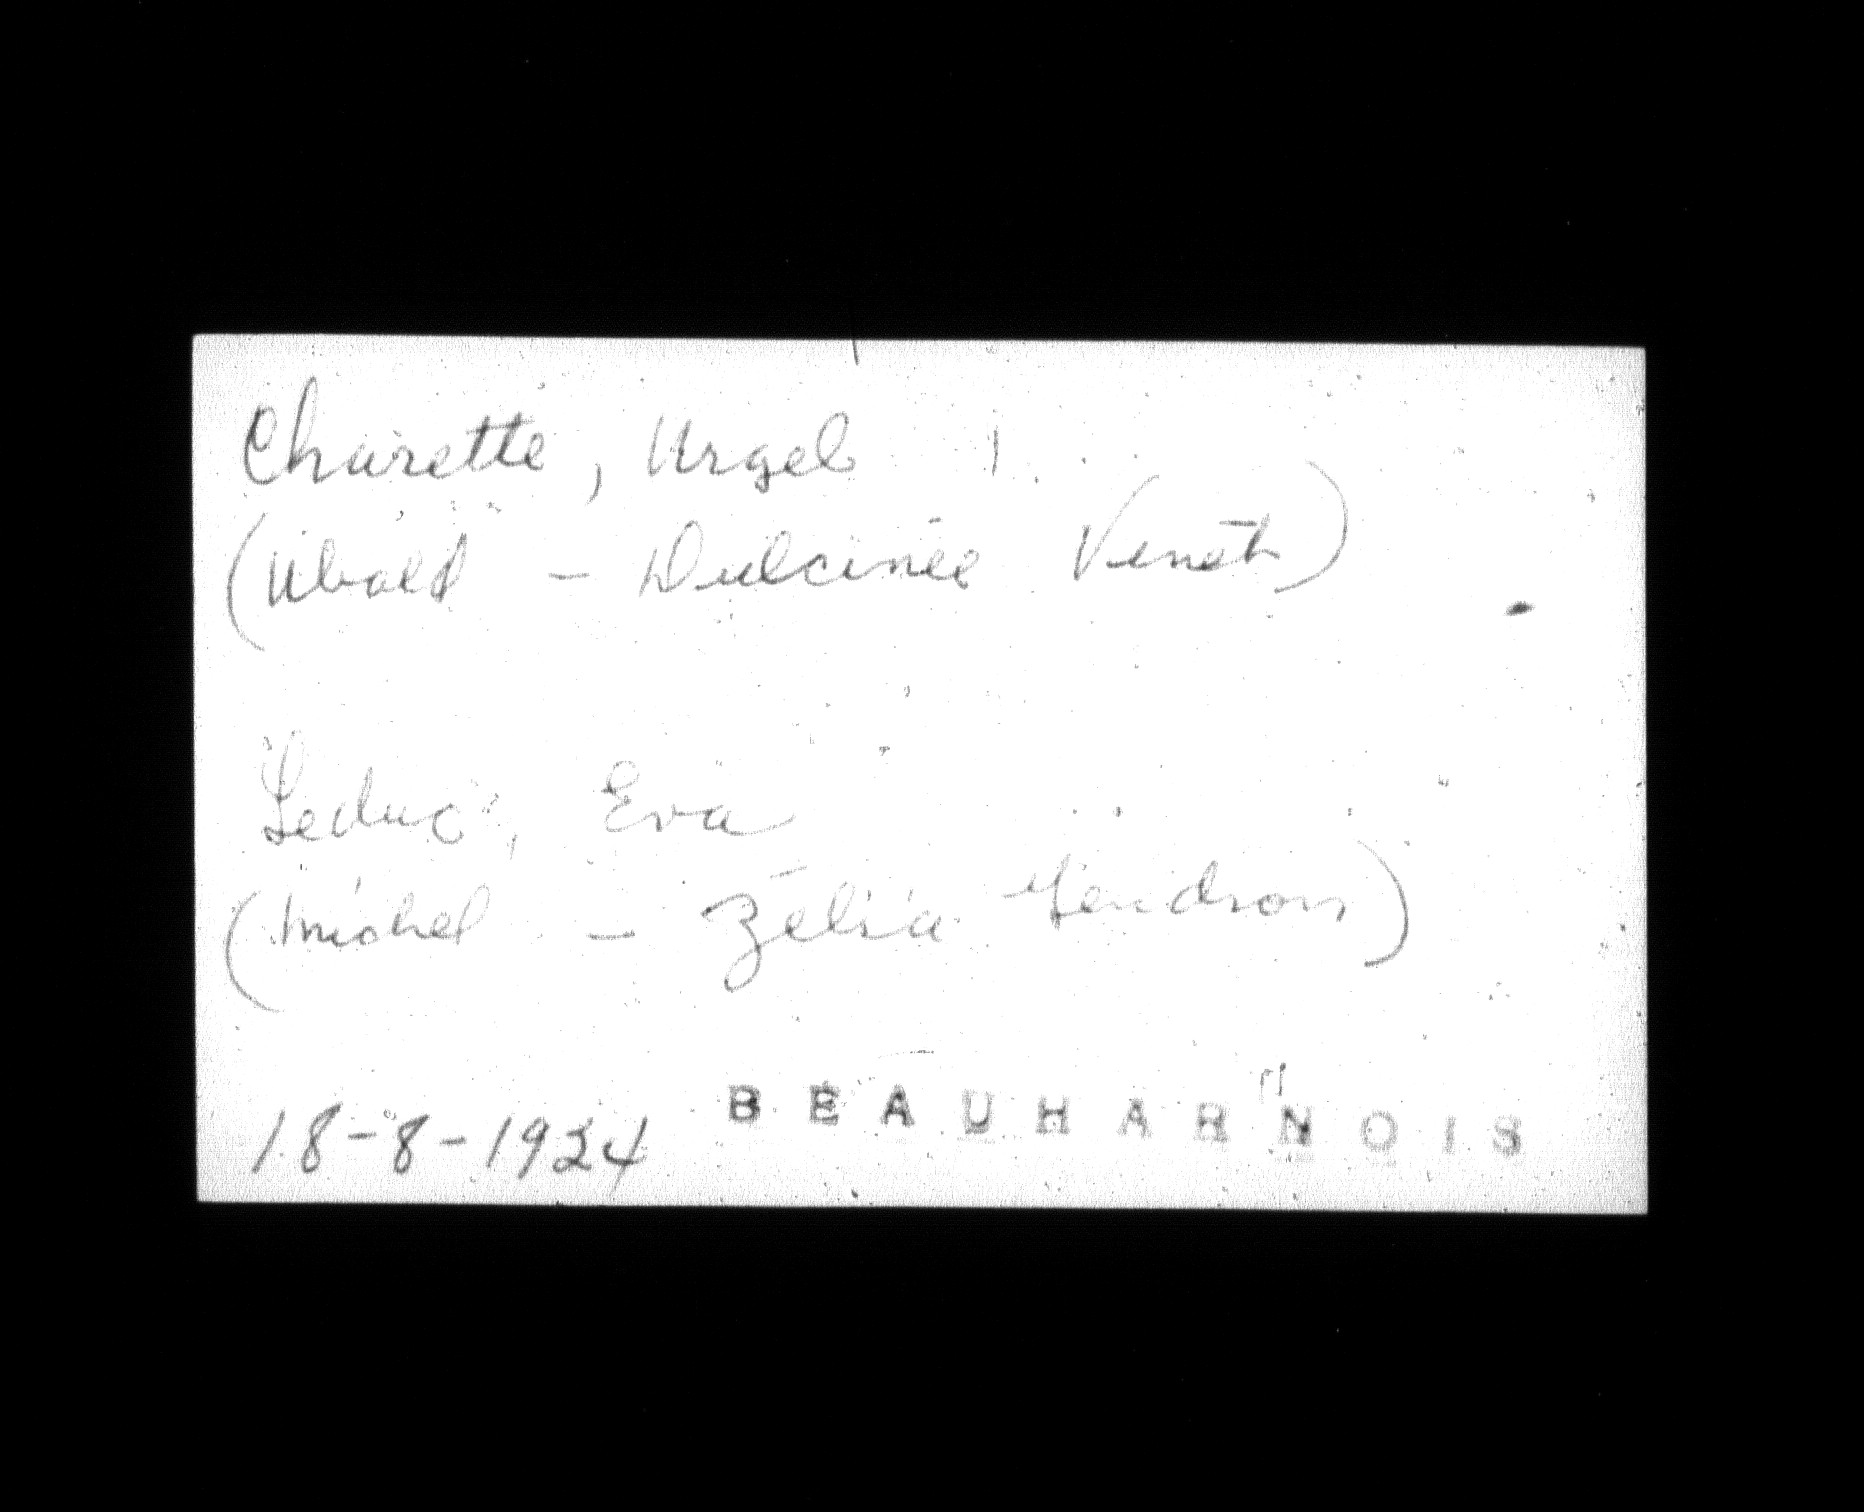 Charette, Urgel
(Ubald - Dulcinée Venet)
Leduc, Eva
(Michel - Zélia Gendron)
18-8-1924 BEAUHARNOIS